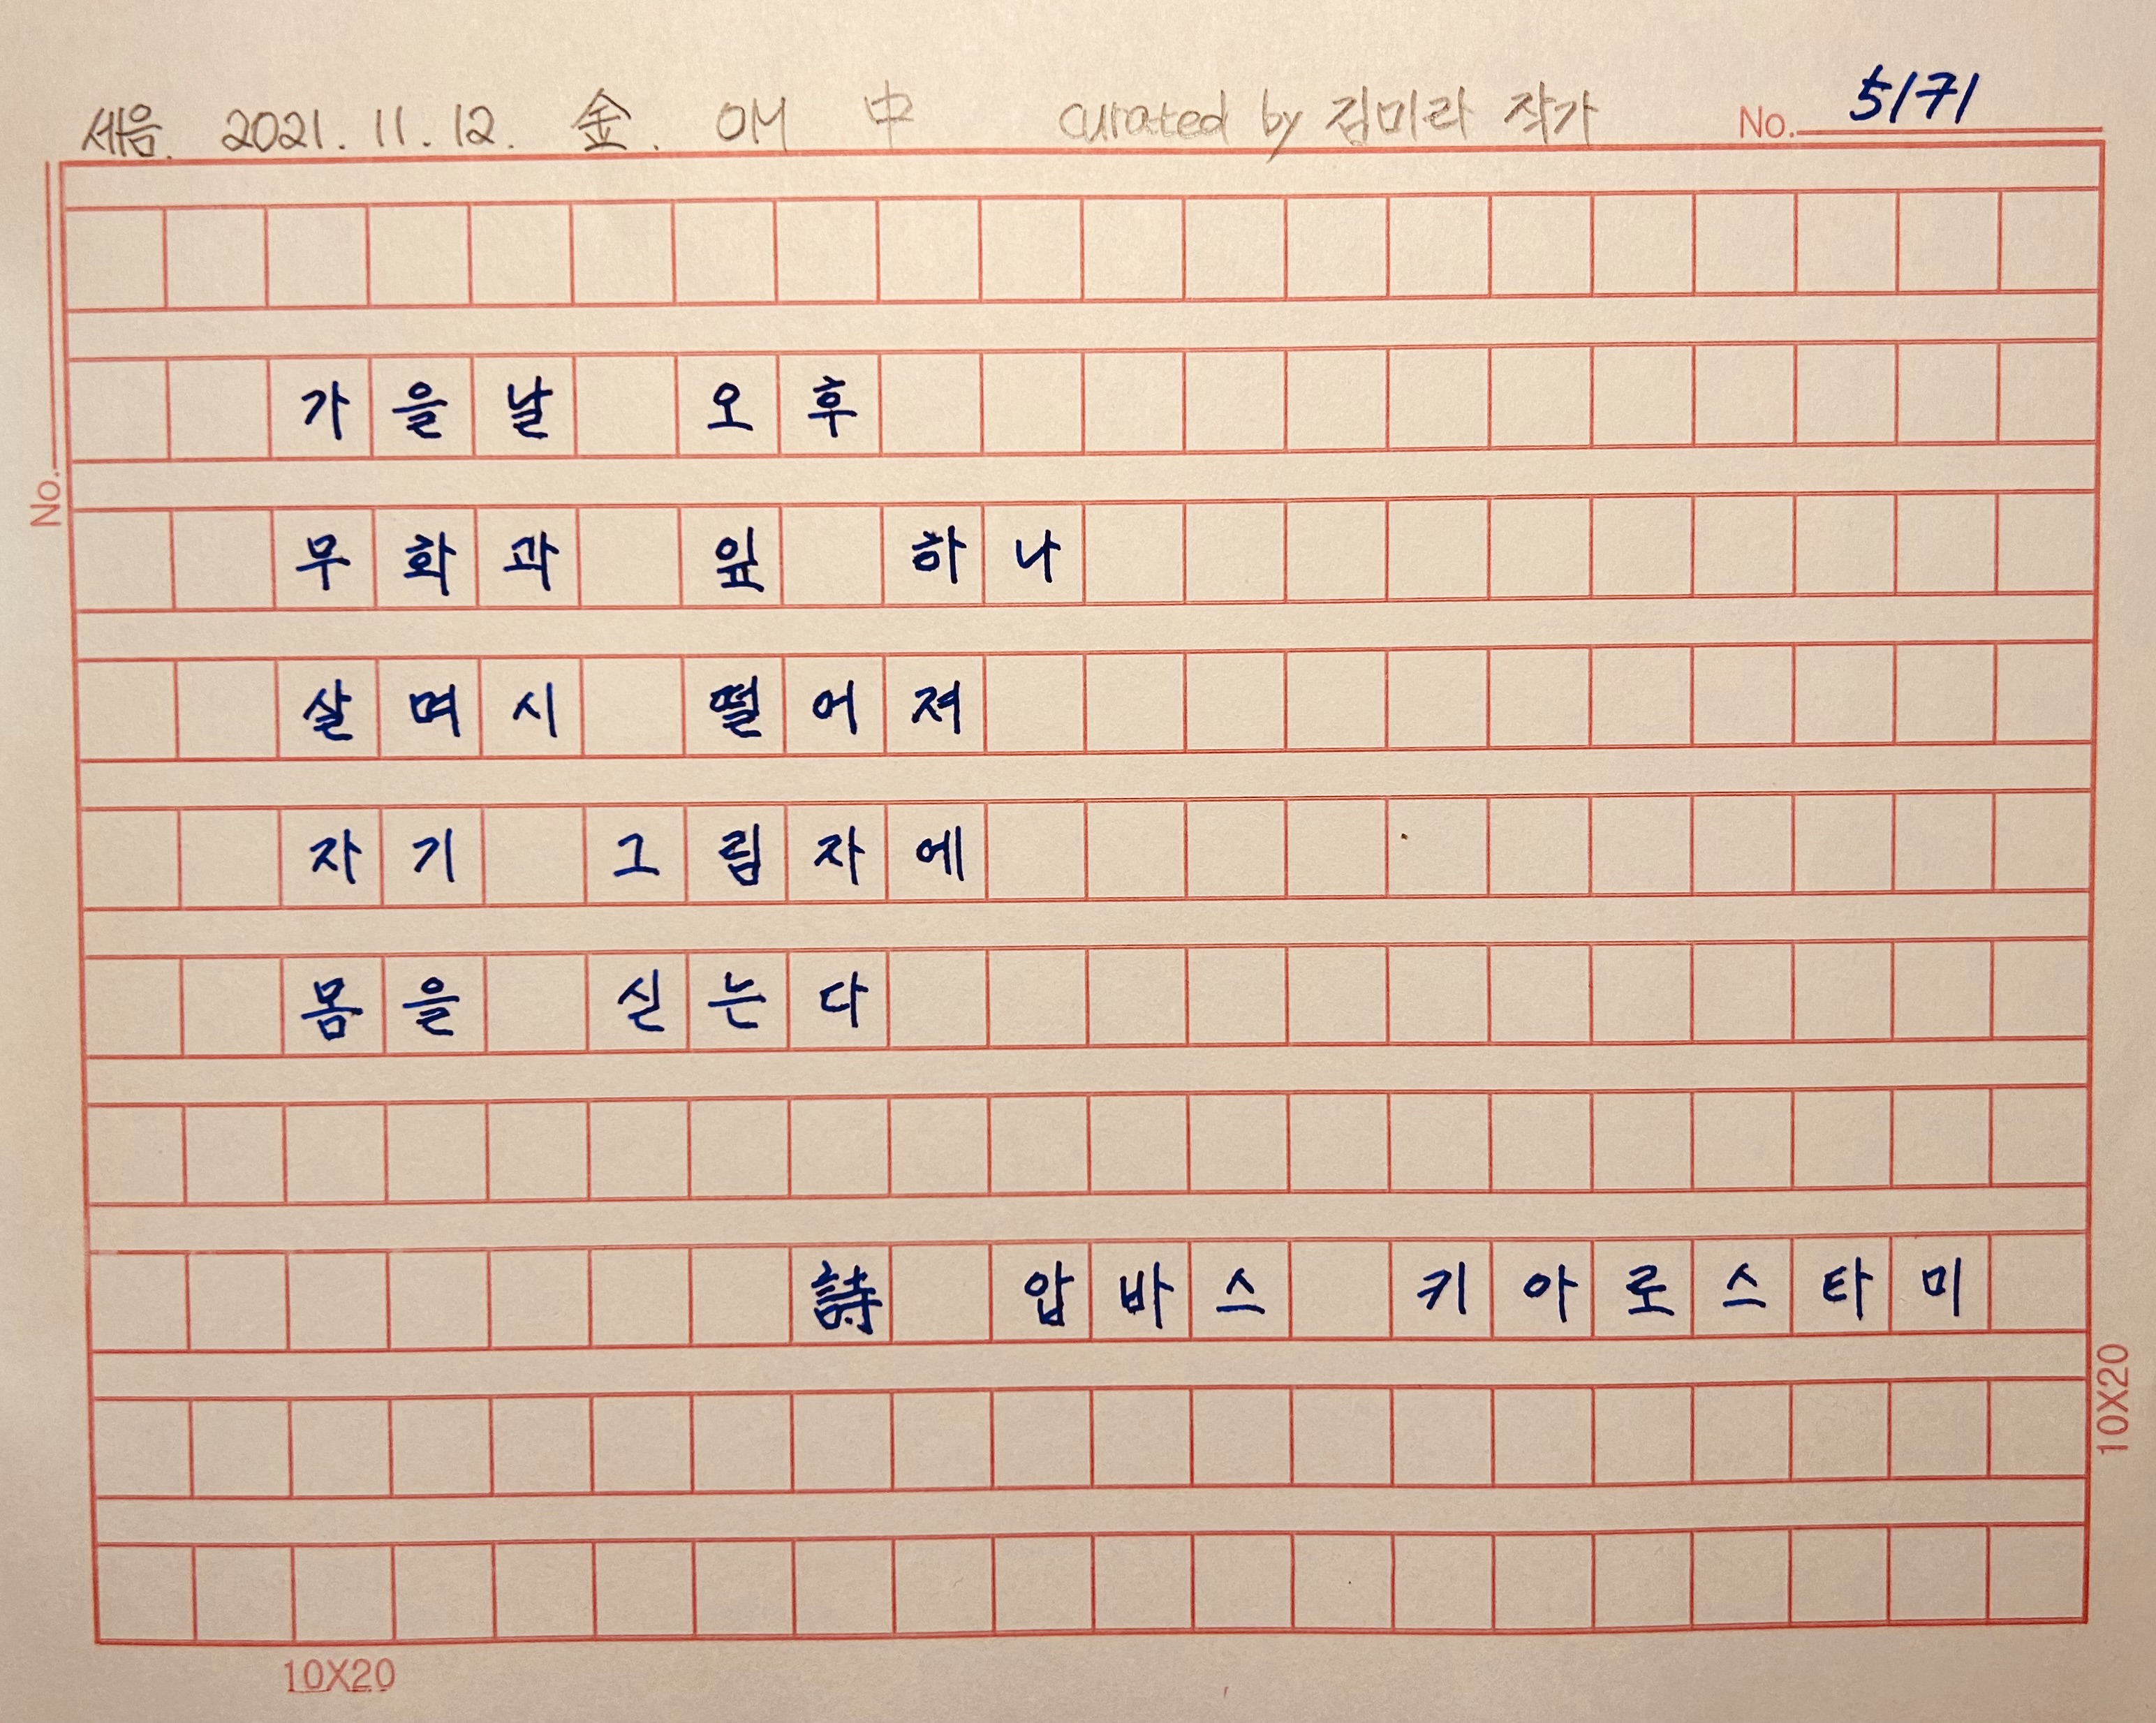 세음. 2021. 11. 12. 金. OM 中 curated by 김미라 작가 No. 5171
가을날 오후
무화과 잎 하나
살며시 떨어져
자기 그림자에
몸을 싣는다
詩 압바스 키아로스타미
No.
10X20
10X20